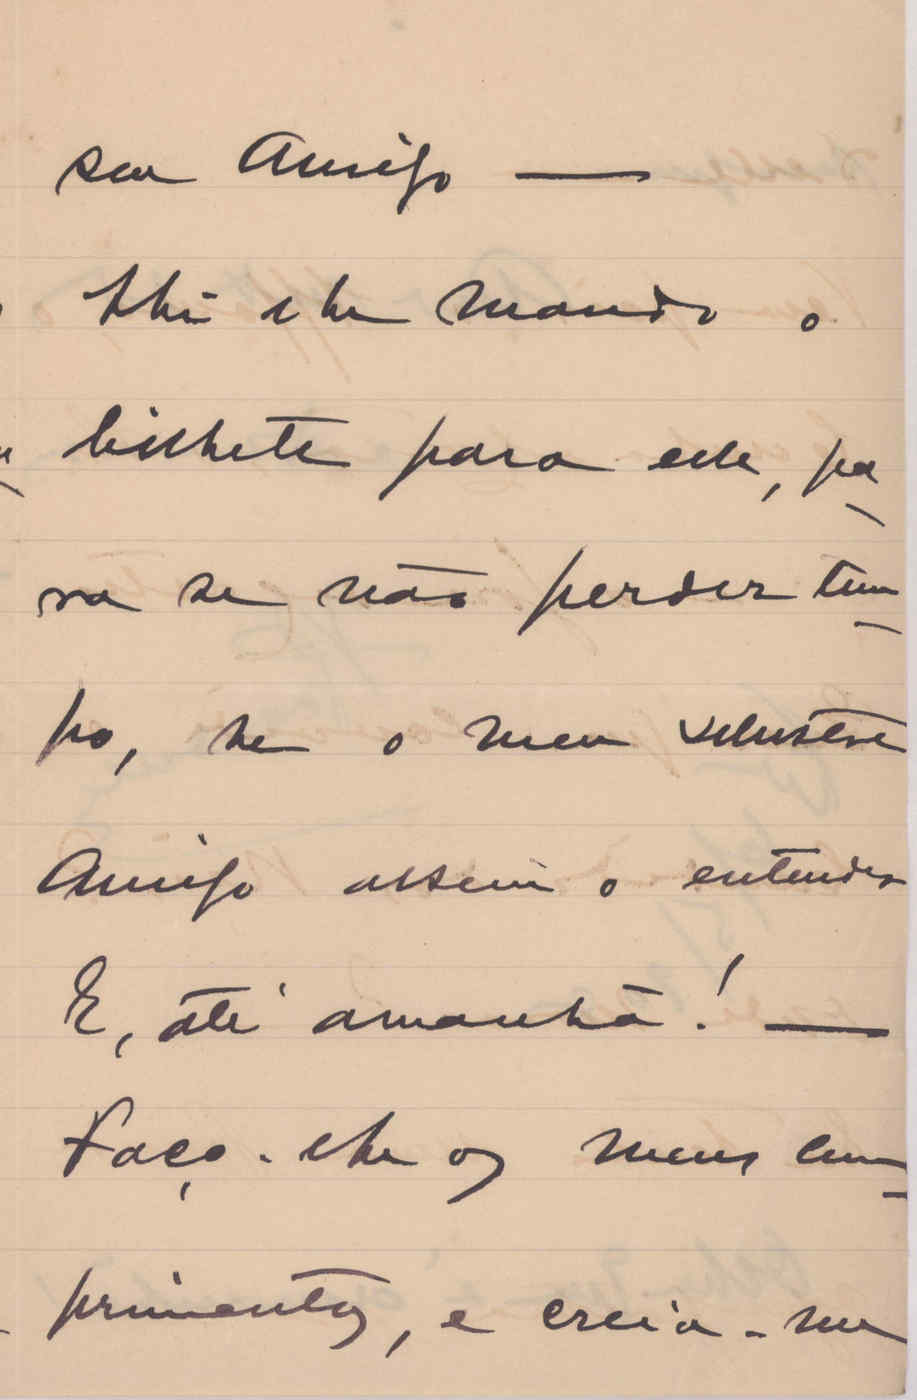 seu Amigo —
Ahi lhe mando o
bilhete para elle, pa-
ra se não perder tem-
po, se o meu illustre
Amigo assim o entender
E, até amanhã! —
Faço-lhe os meus cum-
primentos, e creia-me